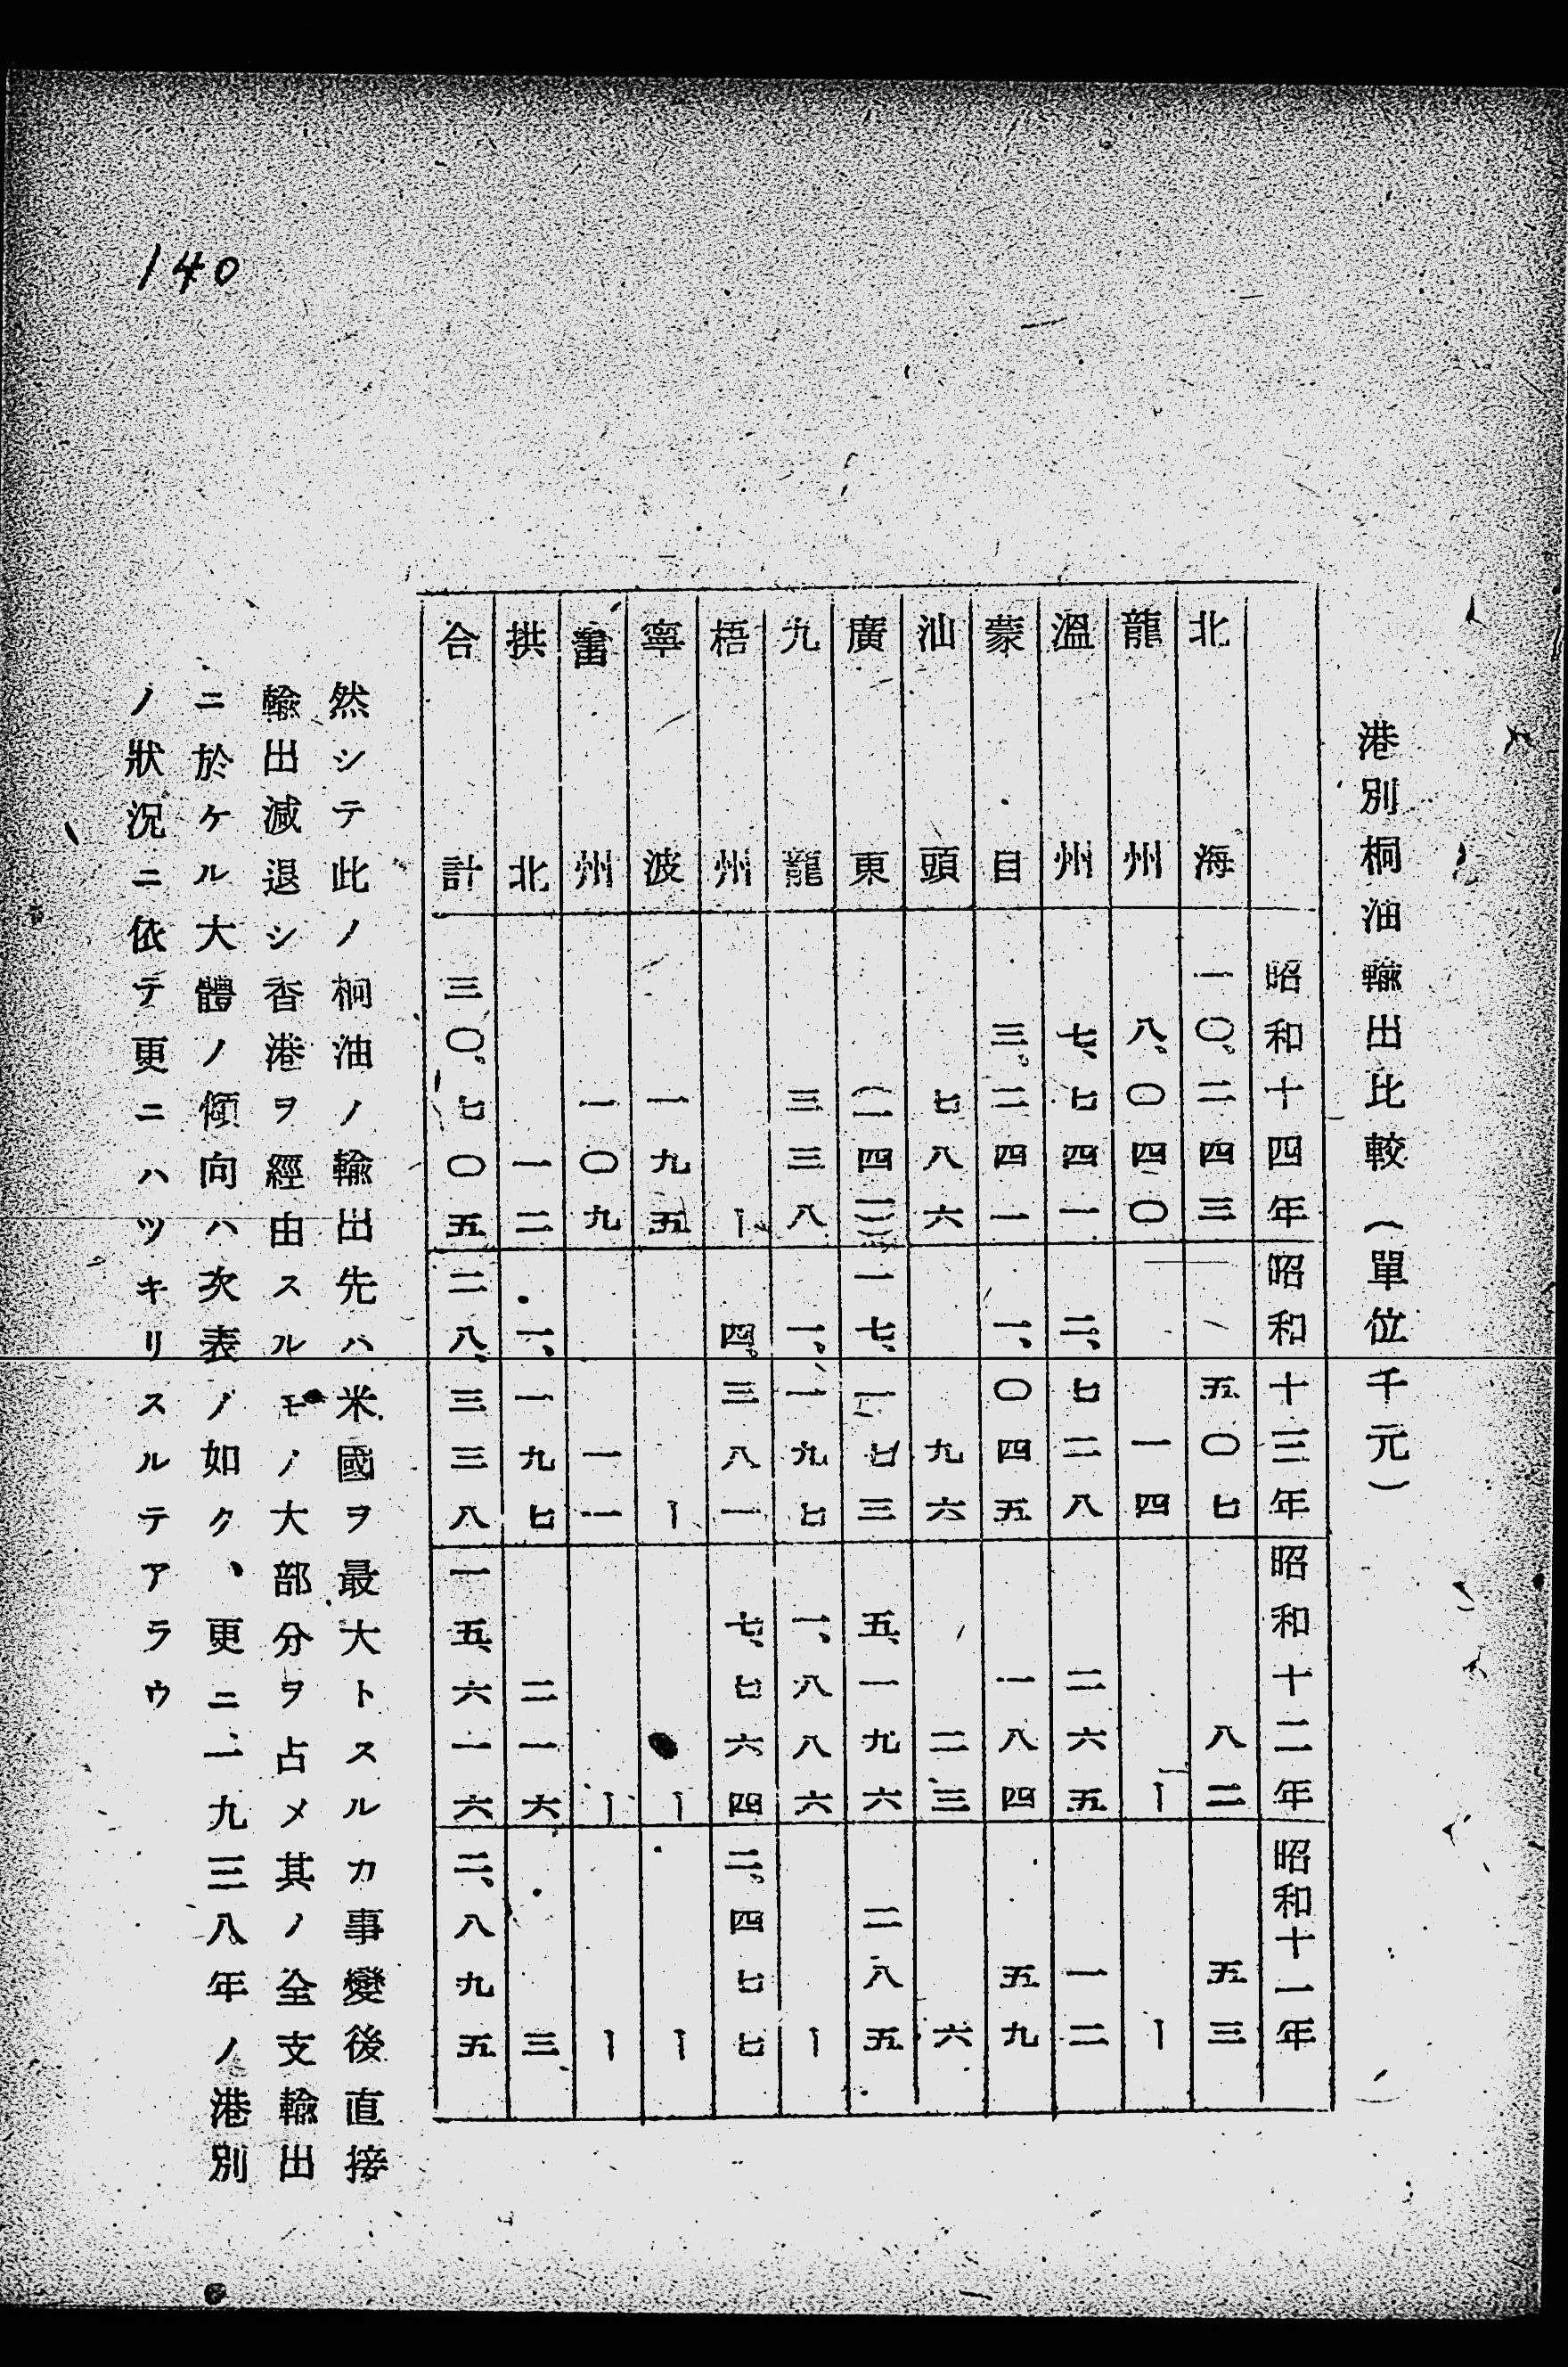 140
港別桐油輸出比較(單位千元)
昭和十四年 昭和十三年 昭和十二年 昭和十一年
北海 一〇、二四三 五〇七 八二 五三
龍州 八、〇四〇 一四 ー ー
溫州 七、七四一 二、七二八 二六五 一二
蒙自 三、二四一 一、〇四五 一八四 五九
汕頭 七八六 九六 二三 六
廣東 一七、一七三 五、一九六 二八五
九龍 三三八 一、一九七 一、八八六 ー
梧州 ー 四、三八一 七、七六四 二、四七七
寧波 一九五 ー ー ー
州 一〇九 一一 ー ー
拱北 一二 一、一九七 二一六 三
合計 三〇、七〇五 二八、三三八 一五、六一六 二、八九五
然シテ此ノ桐油ノ輸出先ハ米國ヲ最大トスルカ事變後直接
輸出減退シ香港ヲ經由スルモノノ大部分ヲ占メ其ノ全支輸出
ニ於ケル大體ノ傾向ハ次表ノ如ク、更ニ一九三八年ノ港別
ノ狀況ニ依テ更ニハツキリスルテアラウ